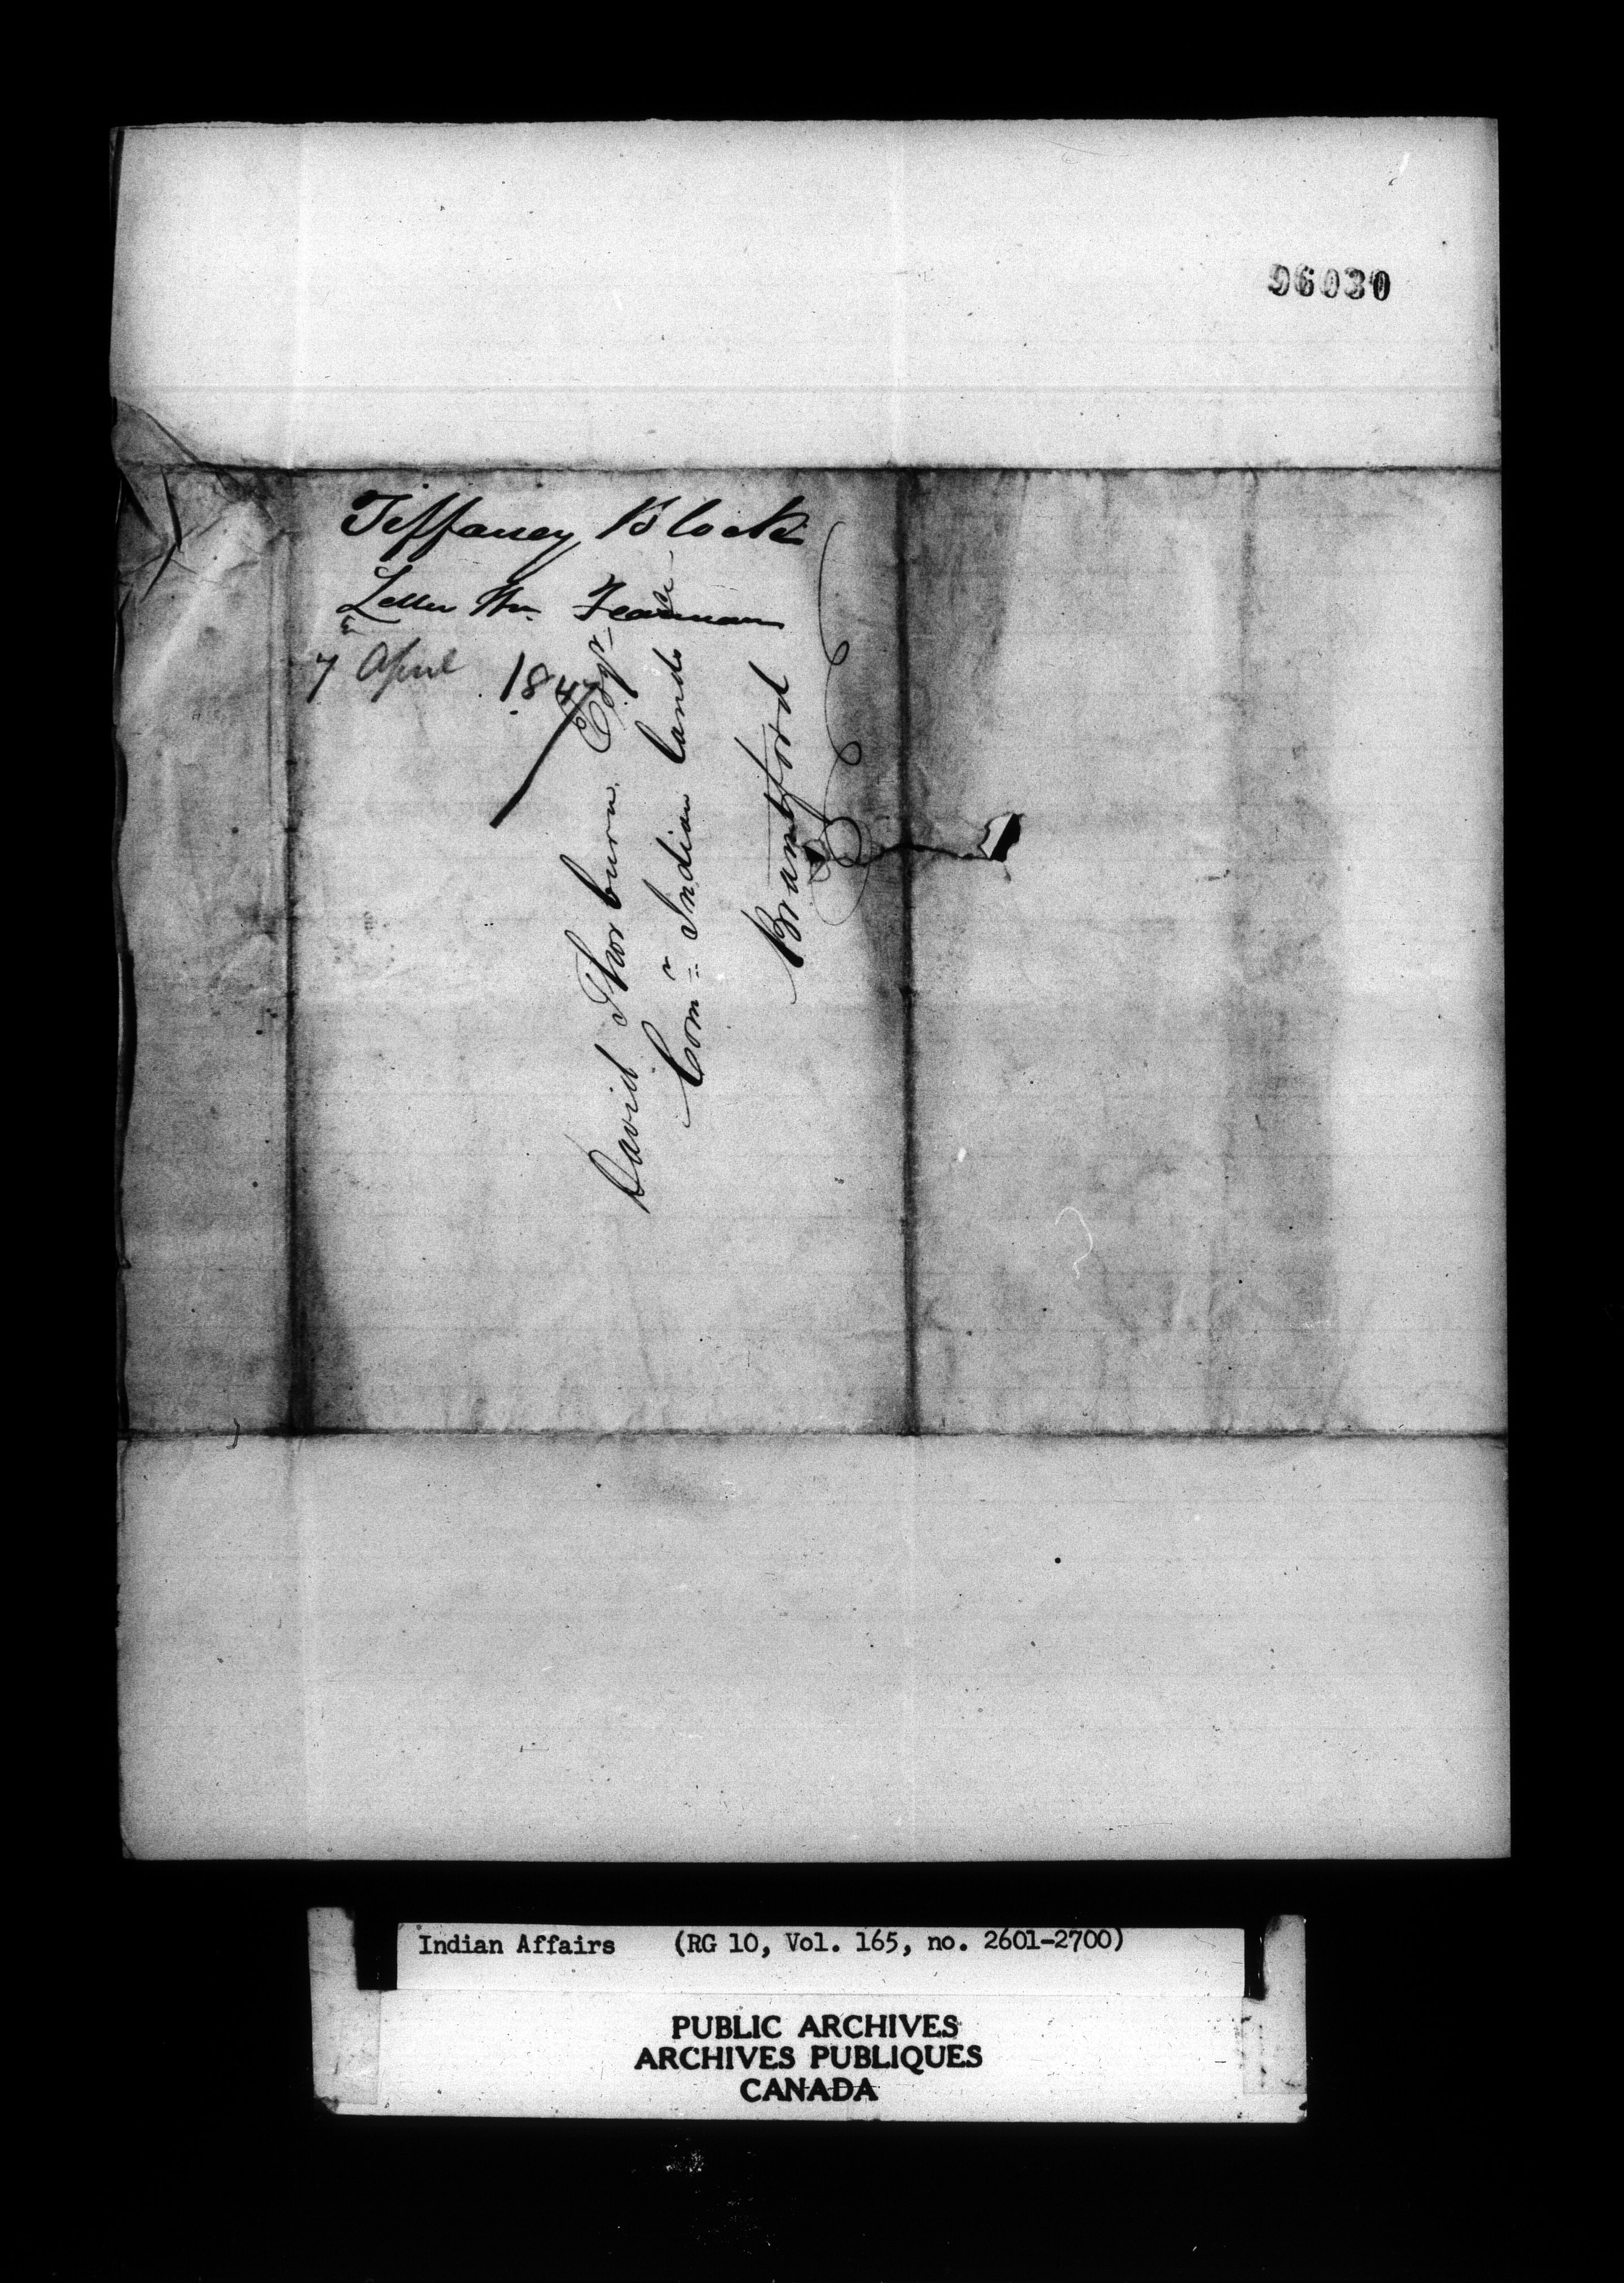 96030
Tiffaney Block
Letter Wm. Fearman
7 April 1847
David Thorburn Esqr
Comr Indian lands &c
Brantford
Indian Affairs (RG 10, Vol. 165, no. 2601-2700)
PUBLIC ARCHIVES
ARCHIVES PUBLIQUES
CANADA